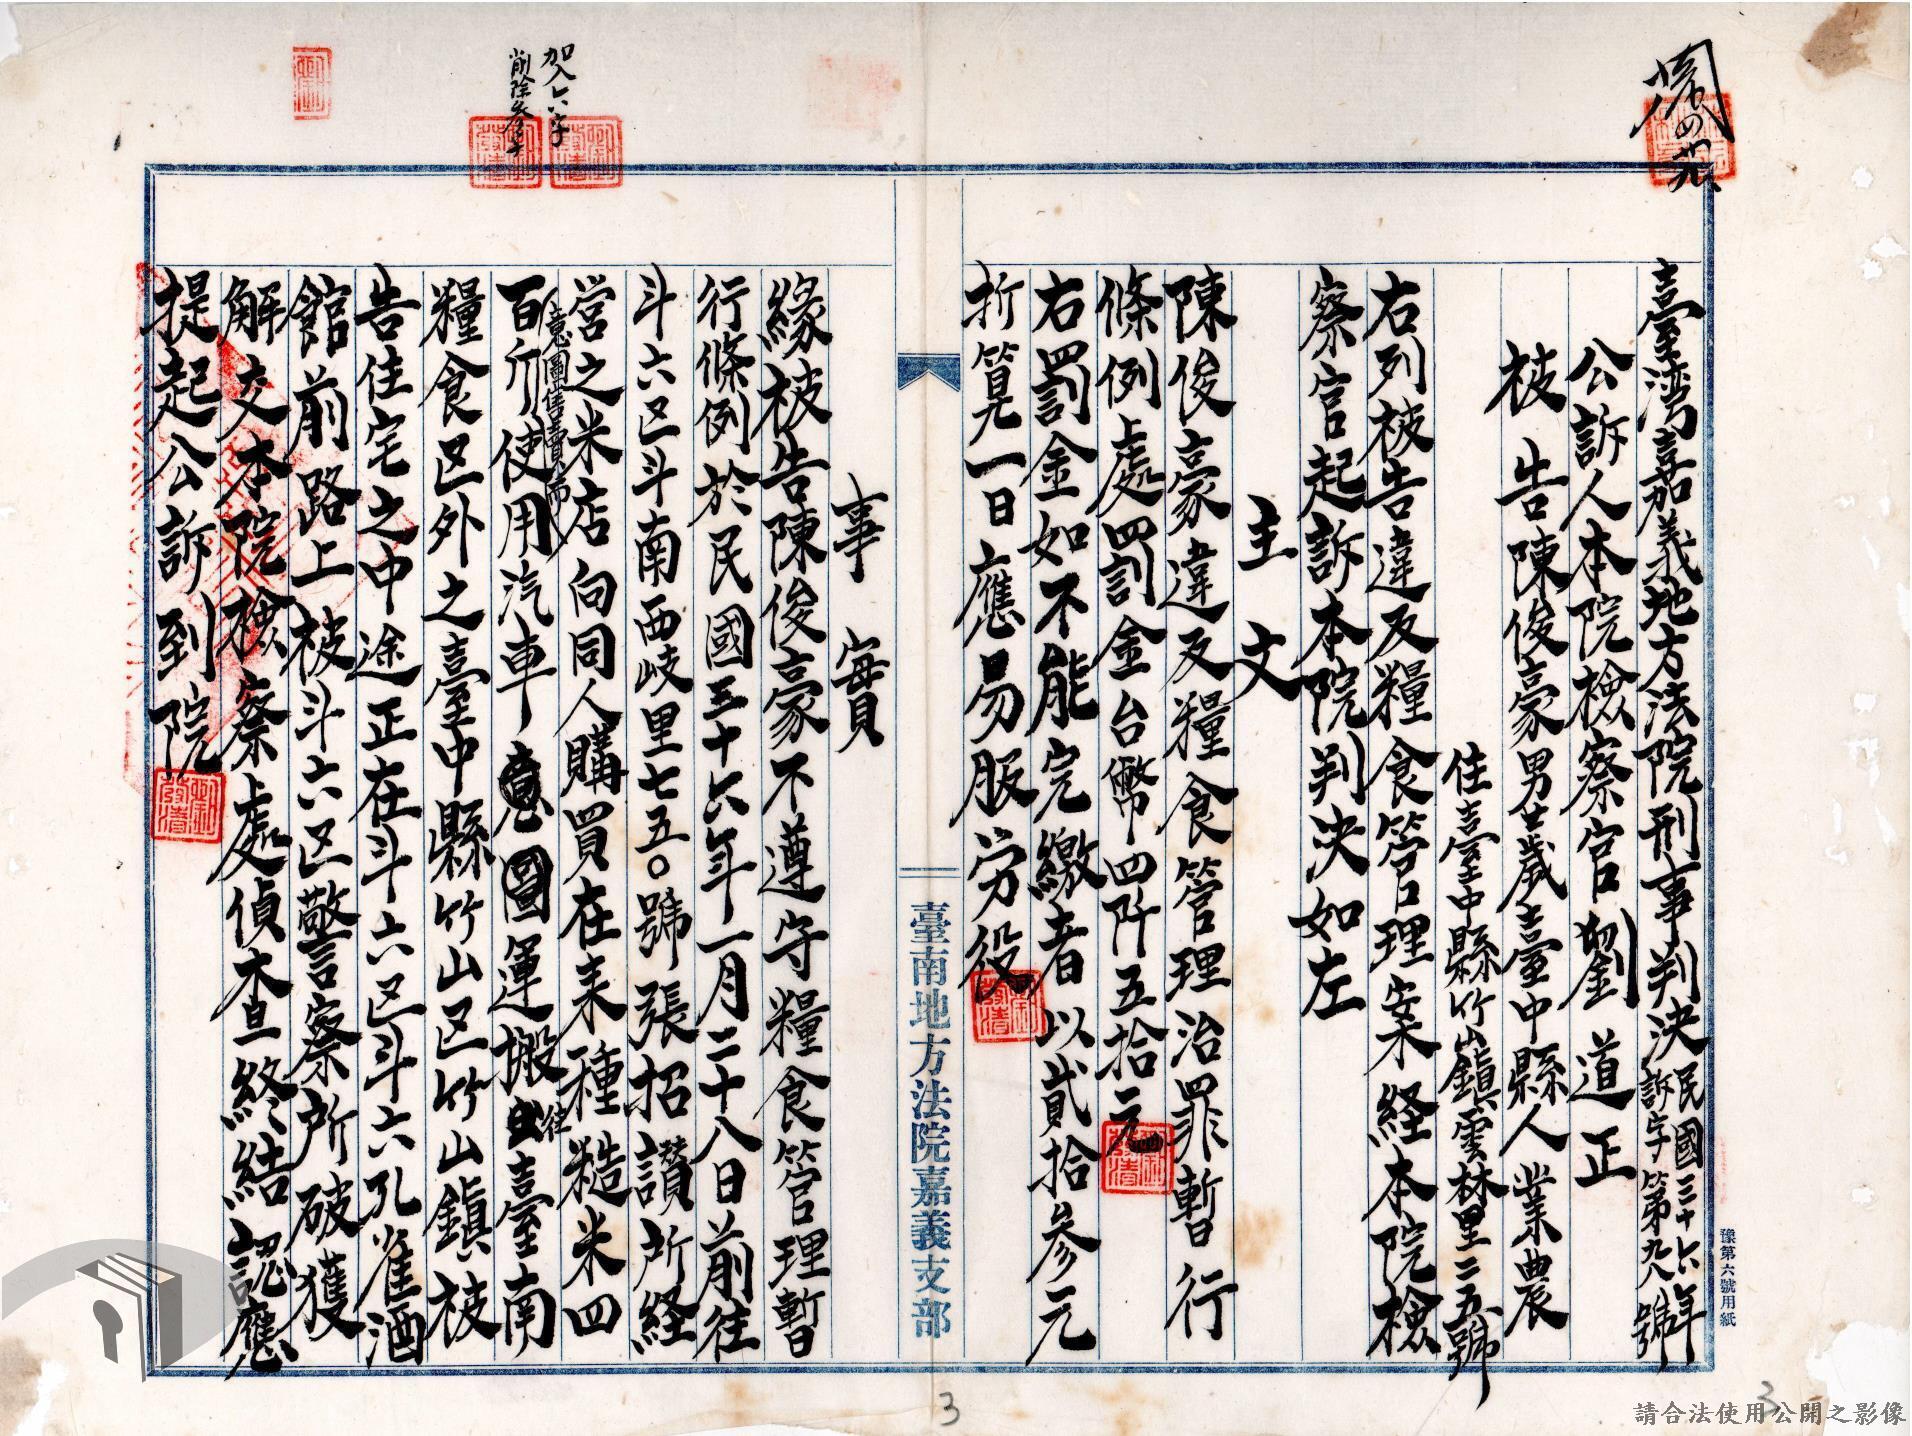 臺灣嘉義地方法院刑事判決
民國三十六年
訴字第九八號
公訴人本院檢察官劉道正
被告陳俊豪男廿歲臺中縣人業農
住臺中縣竹山鎮雲林里二五號
右列被告違反糧食管理案経本院檢
察官起訴本院判決如左
主文
陳俊豪違反糧食管理治罪暫行
條例處罰金台幣四阡五拾元
右罰金如不能完繳者以貳拾参元
折算一日應易服労役
臺南地方法院嘉義支部
事實
緣被告陳俊豪不遵守糧食管理暫
行條例於民國三十六年一月二十八日前往
斗六区斗南西岐里七五〇號張招讃所経
営之米店向同人購買在来種糙米四
百斤意圖售賣而使用汽車意圖運搬往臺南
糧食区外之臺中縣竹山区竹山鎮被
告住宅之中途正在斗六区斗六孔雀酒
館前路上被斗六区警察所破獲
解交本院檢察處偵查終結認應
提起公訴到院
加入六字
削除参字
豫第六號用紙
3
3
請合法使用公開之影像